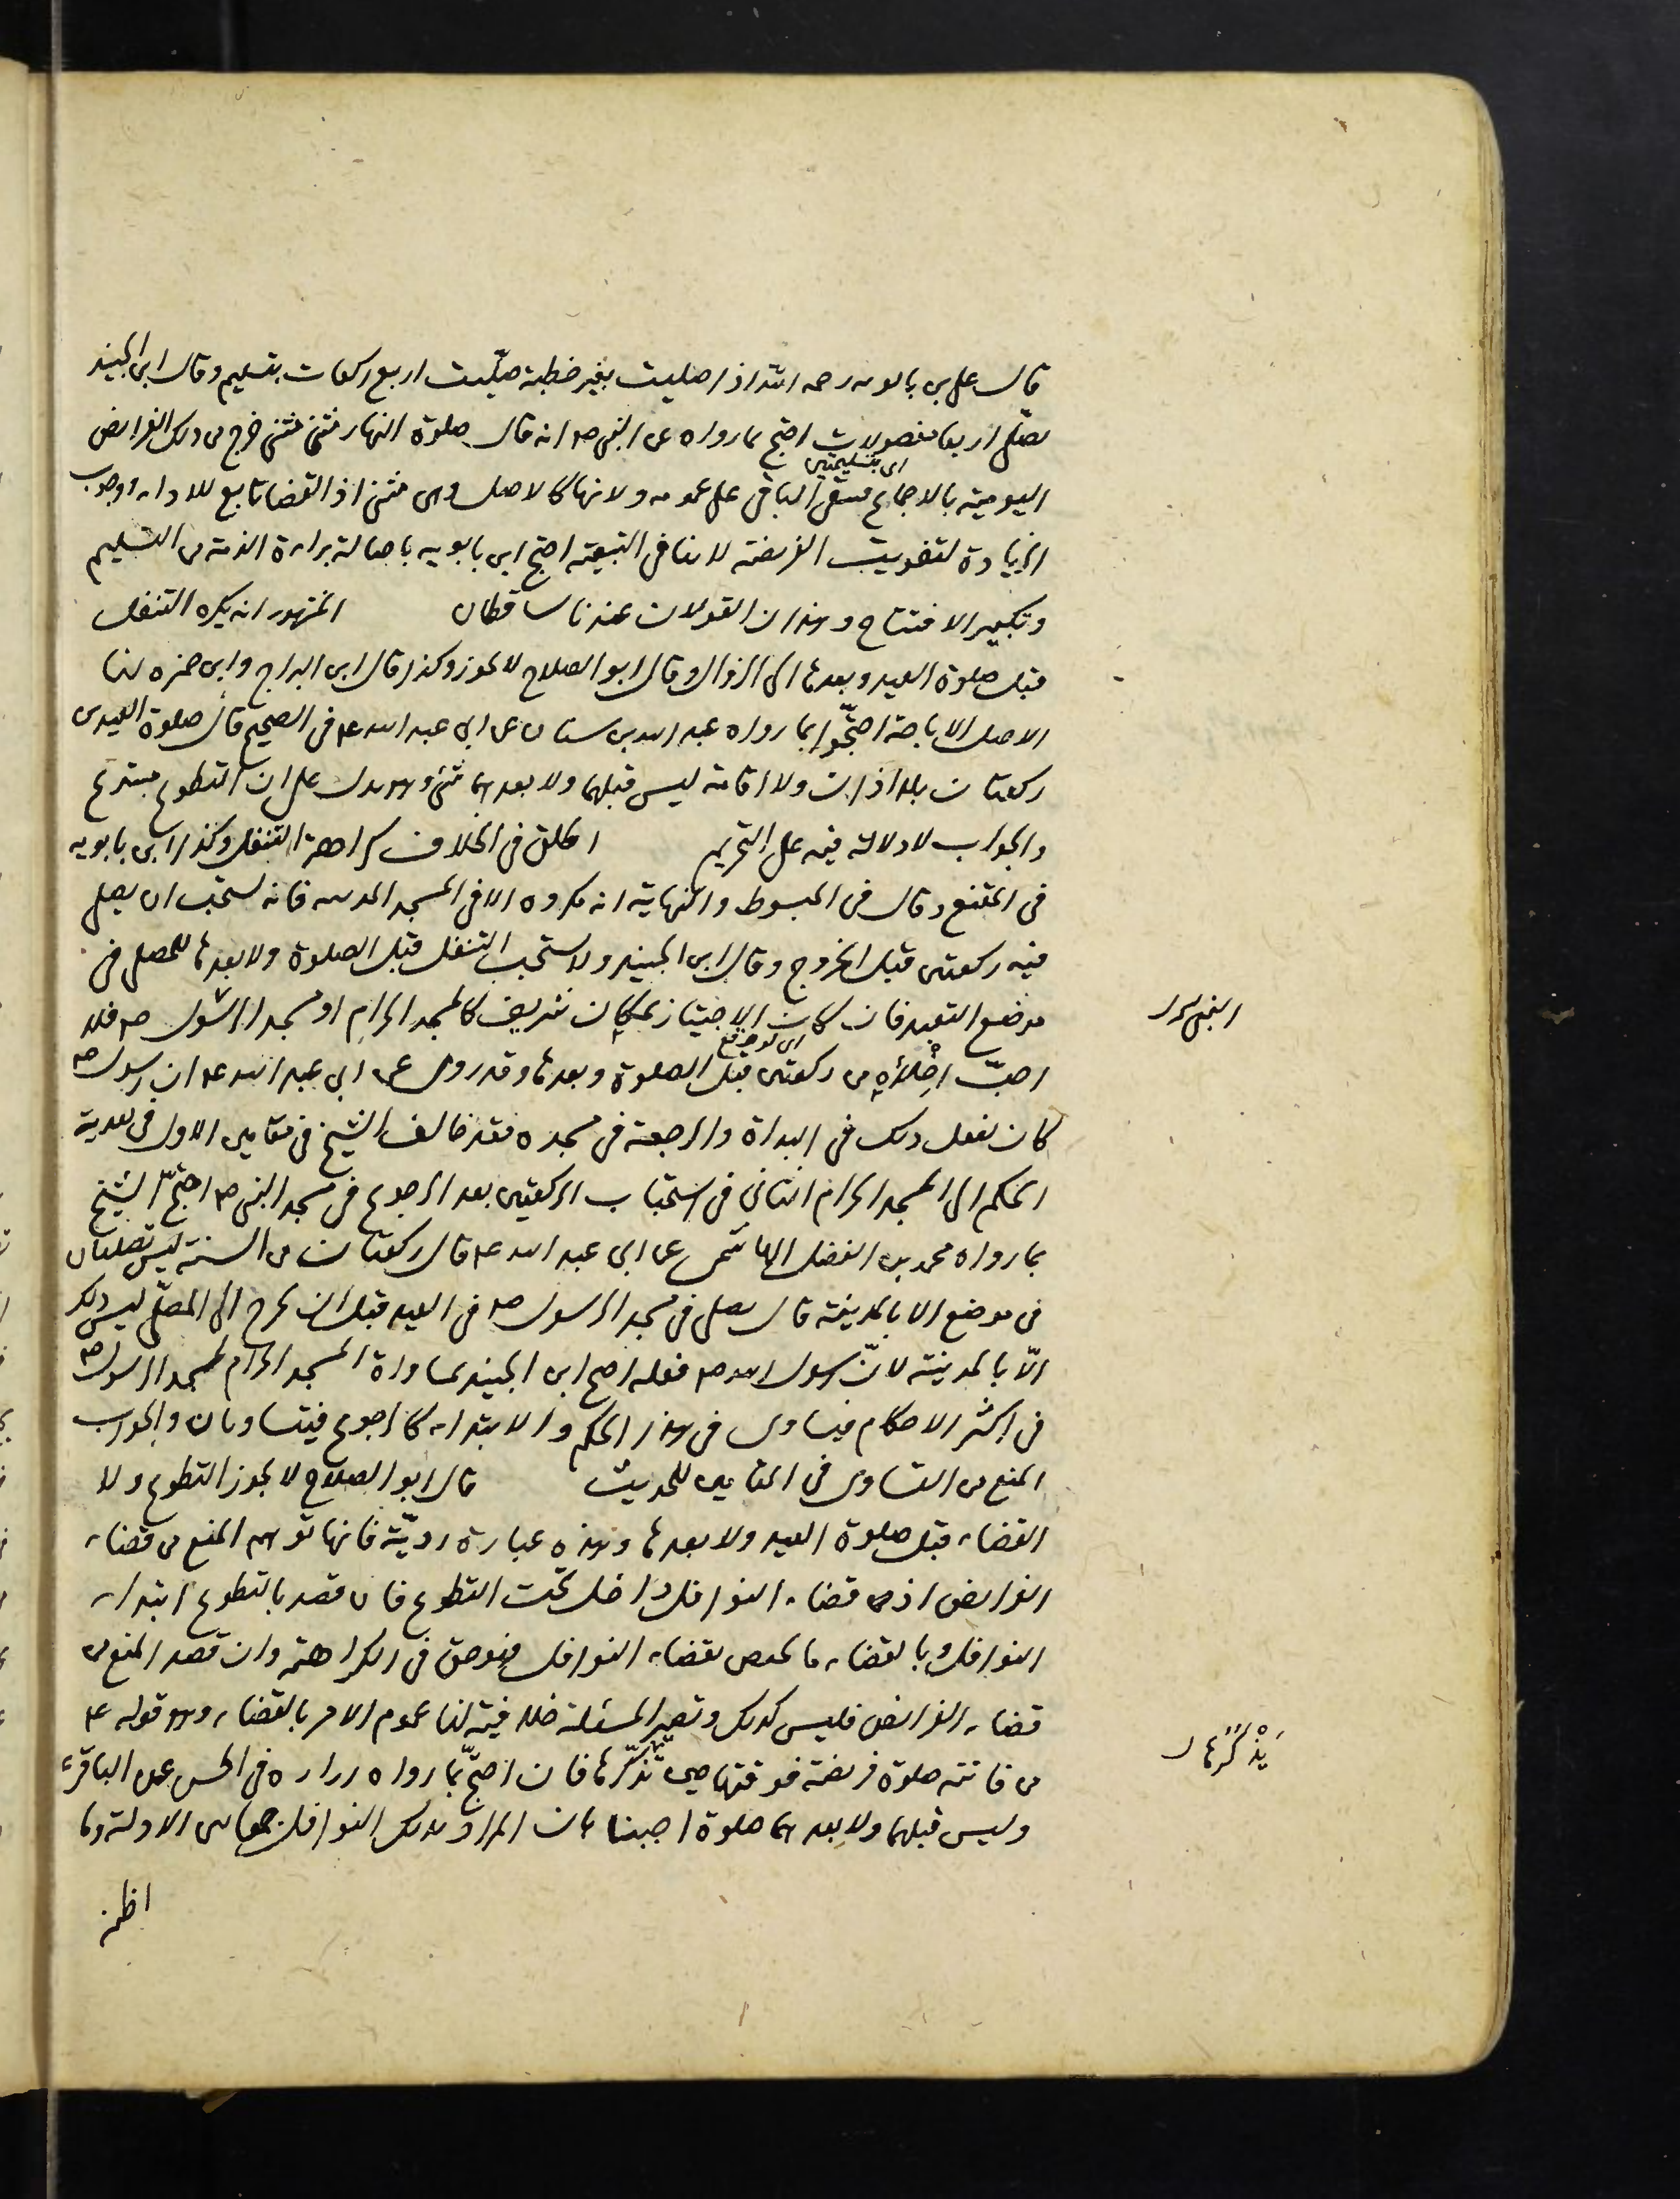 قال على بن بابويه رحمه الله اذا صليت بغير خطبة صلّيت اربع ركعات بتسليم وقال ابن الجنيد
يصلّى اربعا مفصولات احتج بما رواه عن النبى ص انه قال صلوة النهار مثنى مثنى خرج من ذلك الفرايض
اى بتسليمتين
اليومية بالاجماع فيبقى الباقى على عمومه ولانها كالاصل وهى مثنى اذ القضا تابع للاداء ووجوب
الزيادة لتفويت الفريضة لا ينافى التبعية احتج ابن بابويه باصالة براءة الذمة من التسليم
وتكبير الافتتاح وهذان القولان عندنا ساقطان المشهور انه يكره التنفل
قبل صلوة العيد وبعدها الى الزوال وقال ابو الصلاح لا يجوز وكذا قال ابن البراج وابن حمزه لنا
الاصل الاباحة احتجّوا بما رواه عبد الله بن سنان عن ابى عبد الله ع فى الصحيح قال صلوة العيدين
ركعتان بلا اذان ولا اقامة ليس قبلهما ولا بعدهما شئ وهو يدل على ان التطوع مبتدع
والجواب لا دلالة فيه على التحريم اطلق فى الخلاف كراهة التنفل وكذا ابن بابويه
فى المقنع وقال فى المبسوط والنهاية انه مكروه الا فى المسجد المدينه فانه يستحب ان يصلى
فيه ركعتين قبل الخروج وقال ابن الجنيد ولا يستحب التنفل قبل الصلوة ولا بعدها للمصلى فى
موضع التعبد فان كان الاجتياز بمكان شريف كالمسجد الحرام او مسجد الرسول ص فلا
احبّ اخلاؤه من ركعتين قبل الصلوة وبعدها وقد روى عن ابى عبد الله ع ان رسول ص
كان يفعل ذلك فى البدأة والرجعة فى مسجده فقد خالف الشيخ فى مقامين الاول فى تعدية
الحكم الى المسجد الحرام الثانى فى استحباب الركعتين بعد الرجوع فى مسجد النبى ص احتجّ الشيخ
بما رواه محمد بن الفضل الهاشمى عن ابى عبد الله ع قال ركعتان من السنة ليس تصليان
فى موضع الا بالمدينة قال يصلى فى مسجد الرسول ص فى العيد قبل ان يخرج الى المصلّى ليس ذلك
الّا بالمدينة لانّ رسول الله ص فعله احتج ابن الجنيد بمساواة المسجد الحرام لمسجد الرسول ص
فى اكثر الاحكام فيساوى فى هذا الحكم والابتداء كالرجوع فيتساويان والجواب
المنع من التساوى فى المقامين للحديث قال ابو الصلاح لا يجوز التطوع ولا
القضاء قبل صلوة العيد ولا بعدها وهذه عبارة رديّة فانها توهم المنع من قضاء
الفرايض اذ قضاء النوافل داخل تحت التطوع فان قصد بالتطوع ابتداء
النوافل وبالقضاء ما يختص بقضاء النوافل فهو حق فى الكراهة وان قصد المنع من
قضاء الفرائض فليس كذلك وتصير المسئلة خلافية لنا عموم الامر بالقضاء وهو قوله ع
من فاتته صلوة فريضة فوقتها حين تذكّرها فان احتجّ بما رواه زراره فى الحسن عن الباقر ع
وليس قبلهما ولا بعدهما صلوة اجبنا بان المراد بذلك النوافل جمعا بين الادلة وما
يذكرها